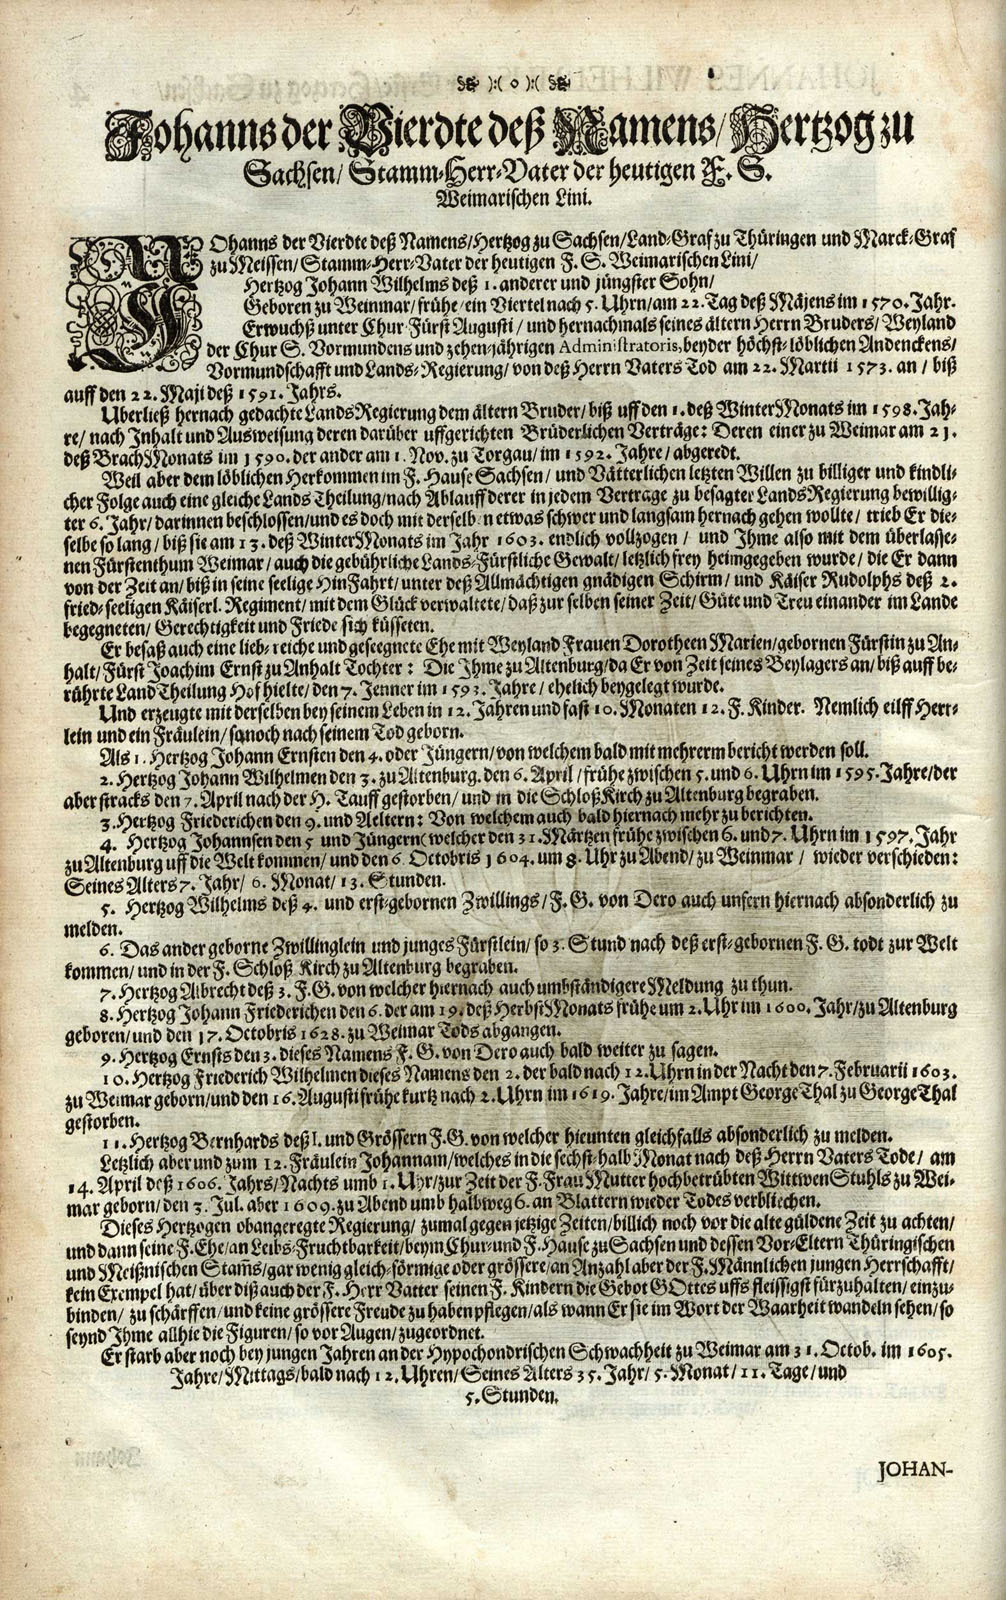 ):( o ):(
Johanns der Vierdte deß Namens/ Hertzog zu
Sachsen/ Stamm-Herr-Vater der heutigen F. S.
Weimarischen Lini.
JOhanns der Vierdte deß Namens/ Hertzog zu Sachsen/ Land-Graf zu Thüringen und Marck-Graf
zu Meissen/ Stamm-Herr-Vater der heutigen F. S. Weimarischen Lini/
Hertzog Johann Wilhelms deß 1. anderer und jüngster Sohn/
Geboren zu Weinmar/ frühe/ ein Viertel nach 5. Uhrn/ am 22. Tag deß Mäjens im 1570. Jahr.
Erwuchß unter Chur-Fürst Augusti/ und hernachmals seines ältern Herrn Bruders/ Weyland
der Chur S. Vormundens und zehen-jährigen Administratoris, beyder höchst-löblichen Andenckens/
Vormundschafft und Lands-Regierung/ von deß Herrn Vaters Tod am 22. Martii 1573. an/ biß
auff den 22. Maji deß 1591. Jahrs.
Uberließ hernach gedachte Lands Regierung dem ältern Bruder/ biß uff den 1. deß Winter Monats im 1598. Jah-
re/ nach Inhalt und Ausweisung deren darüber uffgerichten Brüderlichen Verträge: Deren einer zu Weimar am 21.
deß Brach Monats im 1590. der ander am 1. Nov. zu Torgau/ im 1592. Jahre/ abgeredt.
Weil aber dem löblichen Herkommen im F. Hause Sachsen/ und Vätterlichen letzten Willen zu billiger und kindli-
cher Folge auch eine gleiche Lands Theilung/ nach Ablauff derer in jedem Vertrage zu besagter Lands Regierung bewillig-
ter 6. Jahr/ darinnen beschlossen/ und es doch mit derselben etwas schwer und langsam hernach gehen wollte/ trieb Er die-
selbe so lang/ biß sie am 13. deß Winter Monats im Jahr 1603. endlich vollzogen/ und Ihme also mit dem überlasse-
nen Fürstenthum Weimar/ auch die gebührliche Lands-Fürstliche Gewalt/ letzlich frey heimgegeben wurde/ die Er dann
von der Zeit an/ biß in seine seelige Hin Fahrt/ unter deß Allmächtigen gnädigen Schirm/ und Käiser Rudolphs deß 2.
fried-seeligen Käiserl. Regiment/ mit dem Glück verwaltete/ daß zur selben seiner Zeit/ Güte und Treu einander im Lande
begegneten/ Gerechtigkeit und Friede sich küsseten.
Er besaß auch eine lieb-reiche und geseegnete Ehe mit Weyland Frauen Dorotheen Marien/ gebornen Fürstin zu An-
halt/ Fürst Joachim Ernst zu Anhalt Tochter: Die Ihme zu Altenburg/ da Er von Zeit seines Beylagers an/ biß auff be-
rührte Land Theilung Hof hielte/ den 7. Jenner im 1593. Jahre/ ehelich beygelegt wurde.
Und erzeugte mit derselben bey seinem Leben in 12. Jahren und fast 10. Monaten 12. F. Kinder. Nemlich eilff Herr-
lein und ein Fräulein/ so noch nach seinem Tod geborn.
Als 1. Hertzog Johann Ernsten den 4. oder Jüngern/ von welchem bald mit mehrerm bericht werden soll.
2. Hertzog Johann Wilhelmen den 3. zu Altenburg. den 6. April/ frühe zwischen 5. und 6. Uhrn im 1595. Jahre/ der
aber stracks den 7. April nach der H. Tauff gestorben/ und in die Schloß Kirch zu Altenburg begraben.
3. Hertzog Friederichen den 9. und Aeltern: Von welchem auch bald hiernach mehr zu berichten.
4. Hertzog Johannsen den 5 und Jüngern (welcher den 31. Märtzen frühe zwischen 6. und 7. Uhrn im 1597. Jahr
zu Altenburg uff die Welt kommen/ und den 6. Octobris 1604. um 8. Uhr zu Abend/ zu Weinmar/ wieder verschieden:
Seines Alters 7. Jahr/ 6. Monat/ 13. Stunden.
5. Hertzog Wilhelms deß 4. und erst-gebornen Zwillings/ F. G. von Dero auch unsern hiernach absonderlich zu
melden.
6. Das ander geborne Zwillinglein und junges Fürstlein/ so 3. Stund nach deß erst-gebornen F. G. todt zur Welt
kommen/ und in der F. Schloß Kirch zu Altenburg begraben.
7. Hertzog Albrecht deß 3. F. G. von welcher hiernach auch umbständigere Meldung zu thun.
8. Hertzog Johann Friederichen den 6. der am 19. deß Herbst Monats frühe um 2. Uhr im 1600. Jahr/ zu Altenburg
geboren/ und den 17. Octobris 1628. zu Weimar Tods abgangen.
9. Hertzog Ernsts den 3. dieses Namens F. G. von Dero auch bald weiter zu sagen.
10. Hertzog Friederich Wilhelmen dieses Namens den 2. der bald nach 12. Uhrn in der Nacht den 7. Februarii 1603.
zu Weimar geborn/ und den 16. Augusti frühe kurtz nach 2. Uhrn im 1619. Jahre/ im Ampt George Thal zu George Thal
gestorben.
11. Hertzog Bernhards deß 1. und Grössern F. G. von welcher hieunten gleichfalls absonderlich zu melden.
Letzlich aber und zum 12. Fräulein Johannam/ welches in die sechst-halb Monat nach deß Herrn Vaters Tode/ am
14. April deß 1606. Jahrs/ Nachts umb 1. Uhr/ zur Zeit der F. Frau Mutter hochbetrübten Wittwen Stuhls zu Wei-
mar geborn/ den 3. Jul. aber 1609. zu Abend umb halbweg 6. an Blattern wieder Todes verbliechen.
Dieses Hertzogen obangeregte Regierung/ zumal gegen jetzige Zeiten/ billich noch vor die alte güldene Zeit zu achten/
und dann seine F. Ehe/ an Leibs-Fruchtbarkeit/ beym Chur- und F. Hause zu Sachsen und dessen Vor-Eltern Thüringischen
und Meißnischen Stam̄s/ gar wenig gleich-förmige oder grössere/ an Anzahl aber der F. Männlichen jungen Herrschafft/
kein Exempel hat/ über diß auch der F. Herr Vatter seinen F. Kindern die Gebot GOttes uffs fleissigst fürzuhalten/ einzu-
binden/ zu schärffen/ und keine grössere Freude zu haben pflegen/ als wann Er sie im Wort der Waarheit wandeln sehen/ so
seynd Ihme allhie die Figuren/ so vor Augen/ zugeordnet.
Er starb aber noch bey jungen Jahren an der Hypochondrischen Schwachheit zu Weimar am 31. Octob. im 1605.
Jahre/ Mittags/ bald nach 12. Uhren/ Seines Alters 35. Jahr/ 5. Monat/ 11. Tage/ und
5. Stunden.
JOHAN-